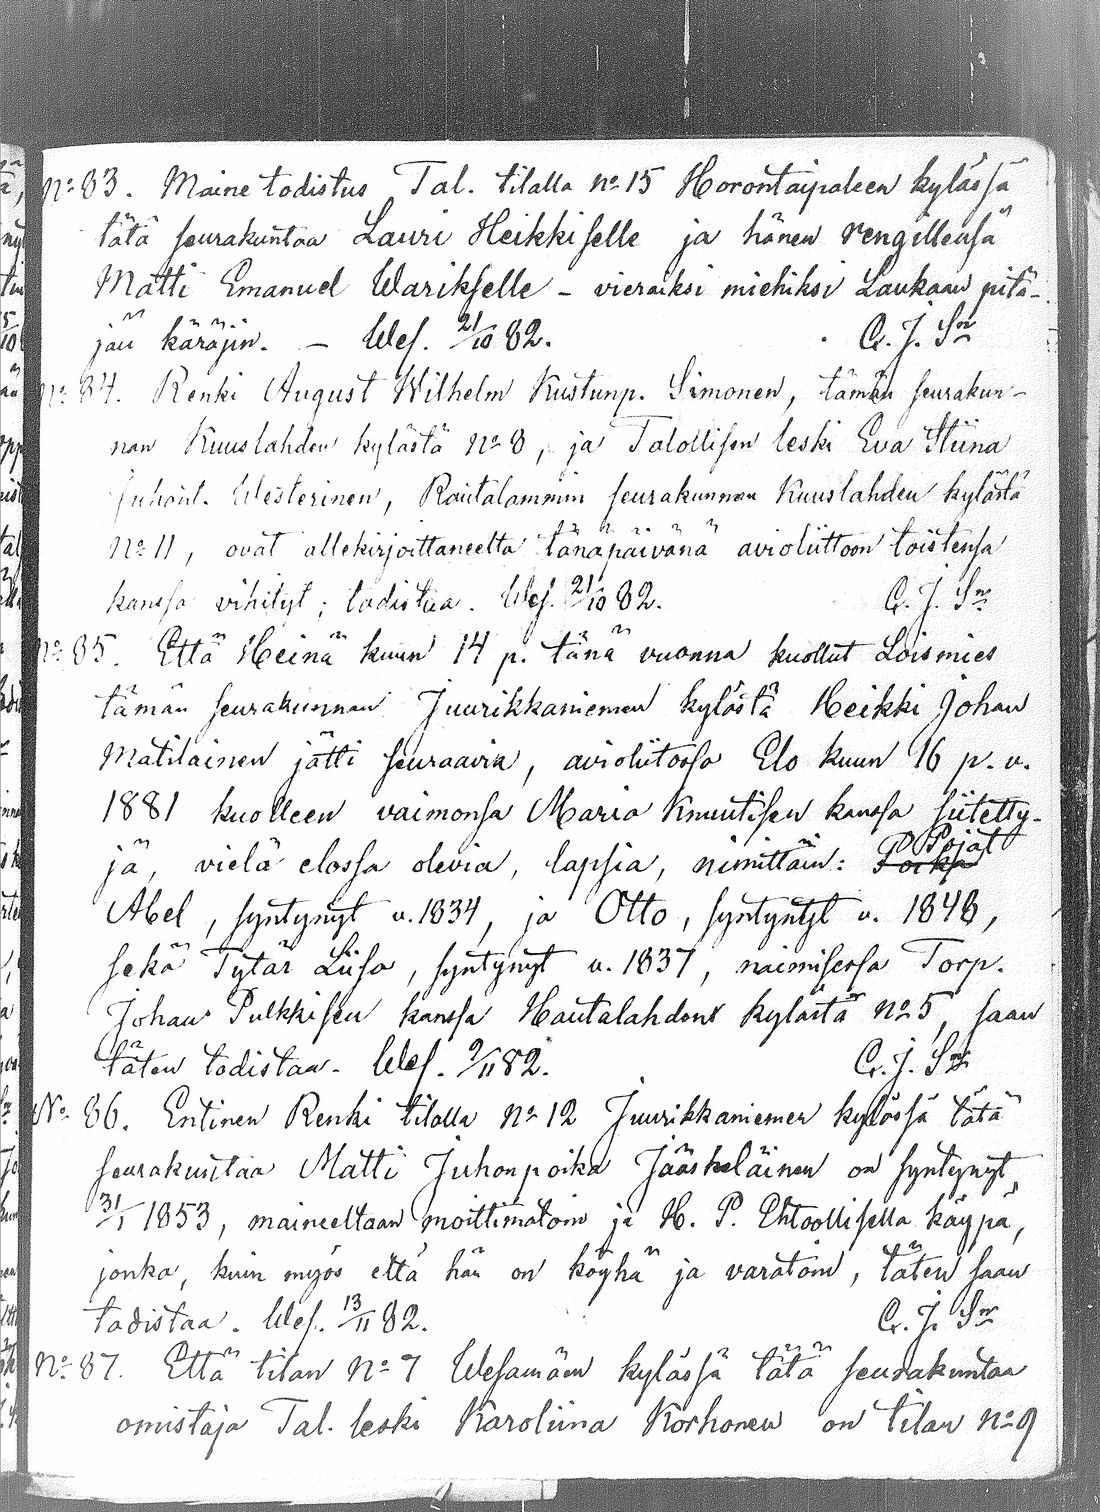 No 83. Maine todistus Tal. tilalla No 15 Horontaipaleen kylässä
tätä seurakuntaa Lauri Heikkiselle ja hänen rengillensä
Matti Emanuel Warikselle – vieraiksi miehiksi Laukaan pitä-
jän käräjin. – Wes. 21/10 82. C. J. Sn
No 84. Renki August Wilhelm Kustunp. Simonen, tämän seurakun-
nan Kuuslahden kylästä No 8, ja Talollisen leski Eva Stiina
Juhant. Westerinen, Rautalammin seurakunnan Kuuslahden kylästä
No 11, ovat allekirjoittaneelta tänäpäivänä avioliittoon toistensa
kanssa vihityt; todistaa. Wes. 21/10 82. C. J. Sn
No 85. Että Heinä kuun 14 p. tänä vuonna kuollut Loismies
tämän seurakunnan Juurikkaniemen kylästä Heikki Johan
Matilainen jätti seuraavia, avioliitossa Elo kuun 16 p. v.
1881 kuolleen vaimonsa Maria Knuutisen kanssa siitetty-
jä, vielä elossa olevia, lapsia, nimittäin: Pojat
Abel, syntynyt v. 1834, ja Otto, syntynyt v. 1848,
sekä Tytär Liisa, syntynyt v. 1837, naimisessa Torp.
Johan Pulkkisen kanssa Hautalahden kylästä No 5, saan
täten todistaa. Wes. 9/11 82. C. J. Sn
No 86. Entinen Renki tilalla No 12 Juurikkaniemen kylässä tätä
seurakuntaa Matti Juhonpoika Jääskeläinen on syntynyt
31/1 1853, maineeltaan moittimatoin ja H. P. Ehtoollisella käypä,
jonka, kuin myös että hän on köyhä ja varatoin, täten saan
todistaa. Wes. 13/11 82. C. J. Sn
No 87. Että tilan No 7 Wesamäen kylässä tätä seurakuntaa
omistaja Tal. leski Karoliina Korhonen on tilan No 9